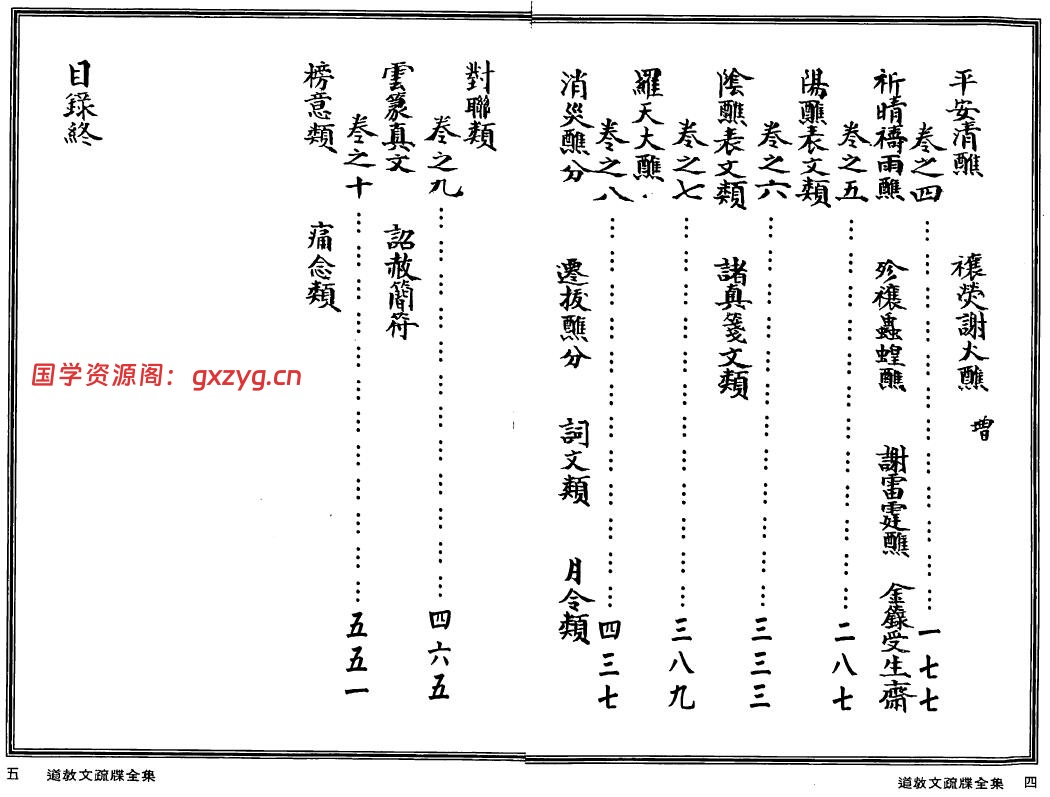 平安清醮　禳熒謝火醮　增
卷之四……一七七
祈晴禱雨醮　殄禳蟲蝗醮　謝雷霆醮　金籙受生齋
卷之五……二八七
陽醮表文類
卷之六……三三三
陰醮表文類　諸真箋文類
卷之七……三八九
羅天大醮
卷之八……四三七
消災醮分　遷拔醮分　詞文類　月令類
對聯類
卷之九……四六五
雲篆真文　詔赦簡符
卷之十……五五一
榜意類　痛念類
目錄終
国学资源阁：gxzyg.cn
道教文疏牒全集　四
五　道教文疏牒全集